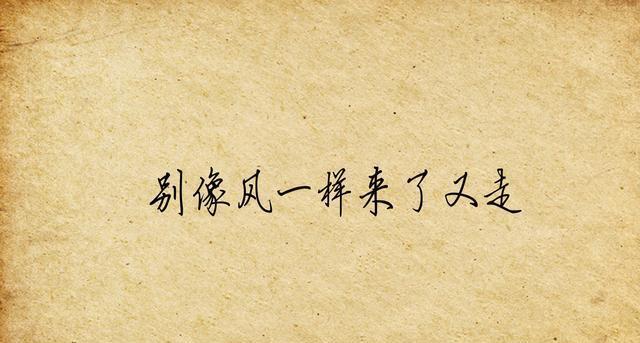 别像风一样来了又走